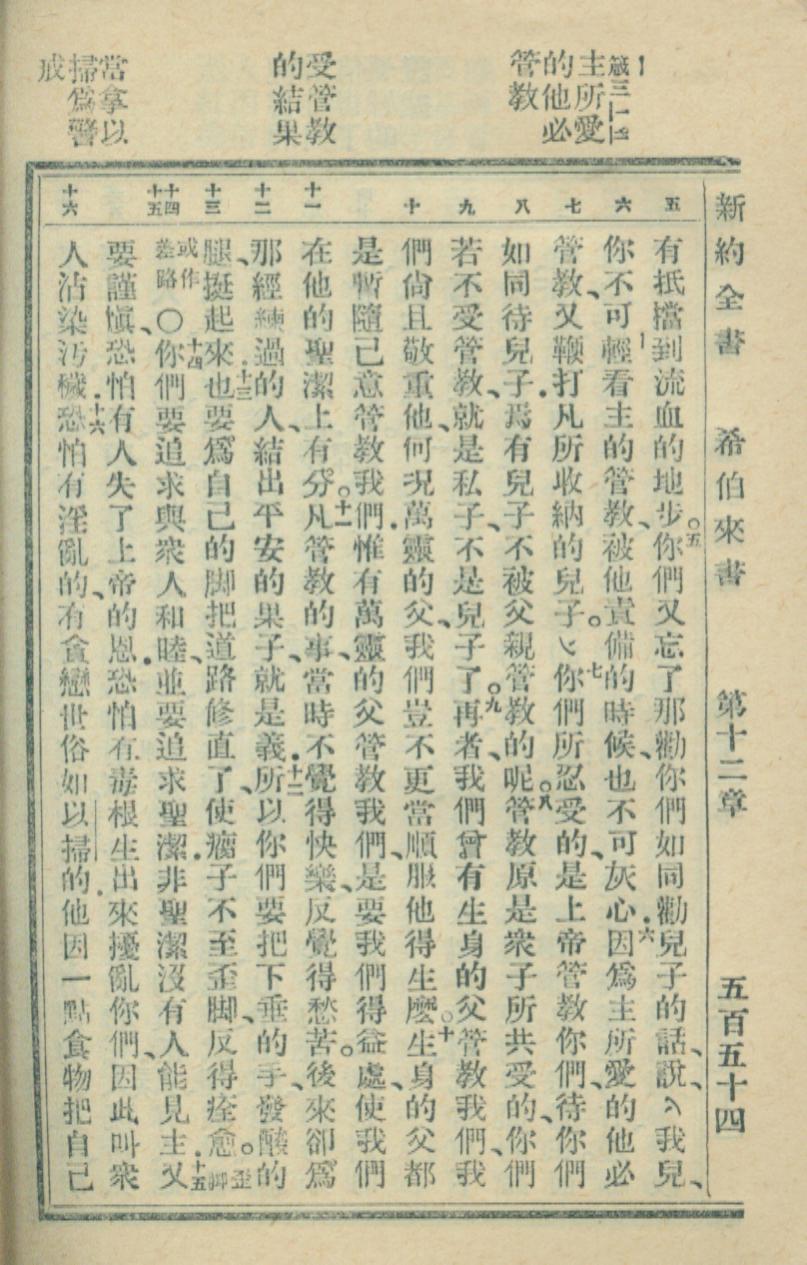 新約全書 希伯來書 第十二章 五百五十四
箴三
主所愛
的他必
管教
受管教
的結果
當拿以
掃爲警
戒
五 六 七 八 九 十 十一 十二 十三 十四 十五 十六
有抵擋到流血的地步。五你們又忘了那勸你們、如同勸兒子的話、說、我兒、
你不可輕看主的管教、被他責備的時候、也不可灰心．六因爲主所愛的他必
管教、又鞭打凡所收納的兒子。七你們所忍受的、是上帝管教你們、待你們
如同待兒子．焉有兒子不被父親管教的呢。八管教原是衆子所共受的、你們
若不受管教、就是私子、不是兒子了。九再者、我們曾有生身的父管教我們、我
們尙且敬重他、何況萬靈的父、我們豈不更當順服他得生麽。十生身的父都
是暫隨己意管教我們．惟有萬靈的父管教我們、是要我們得益處、使我們
在他的聖潔上有分。十一凡管教的事、當時不覺得快樂、反覺得愁苦。後來卻爲
那經練過的人、結出平安的果子、就是義．十二所以你們要把下垂的手、發酸的
腿、挺起來．十三也要爲自己的脚、把道路修直了、使瘸子不至歪脚、反得痊愈。歪脚
或作差路〇十四你們要追求與衆人和睦、並要追求聖潔．非聖潔沒有人能見主．十五又
要謹愼、恐怕有人失了上帝的恩．恐怕有毒根生出來擾亂你們、因此叫衆
人沾染汚穢．十六恐怕有淫亂的、有貪戀世俗如以掃的．他因一點食物把自己